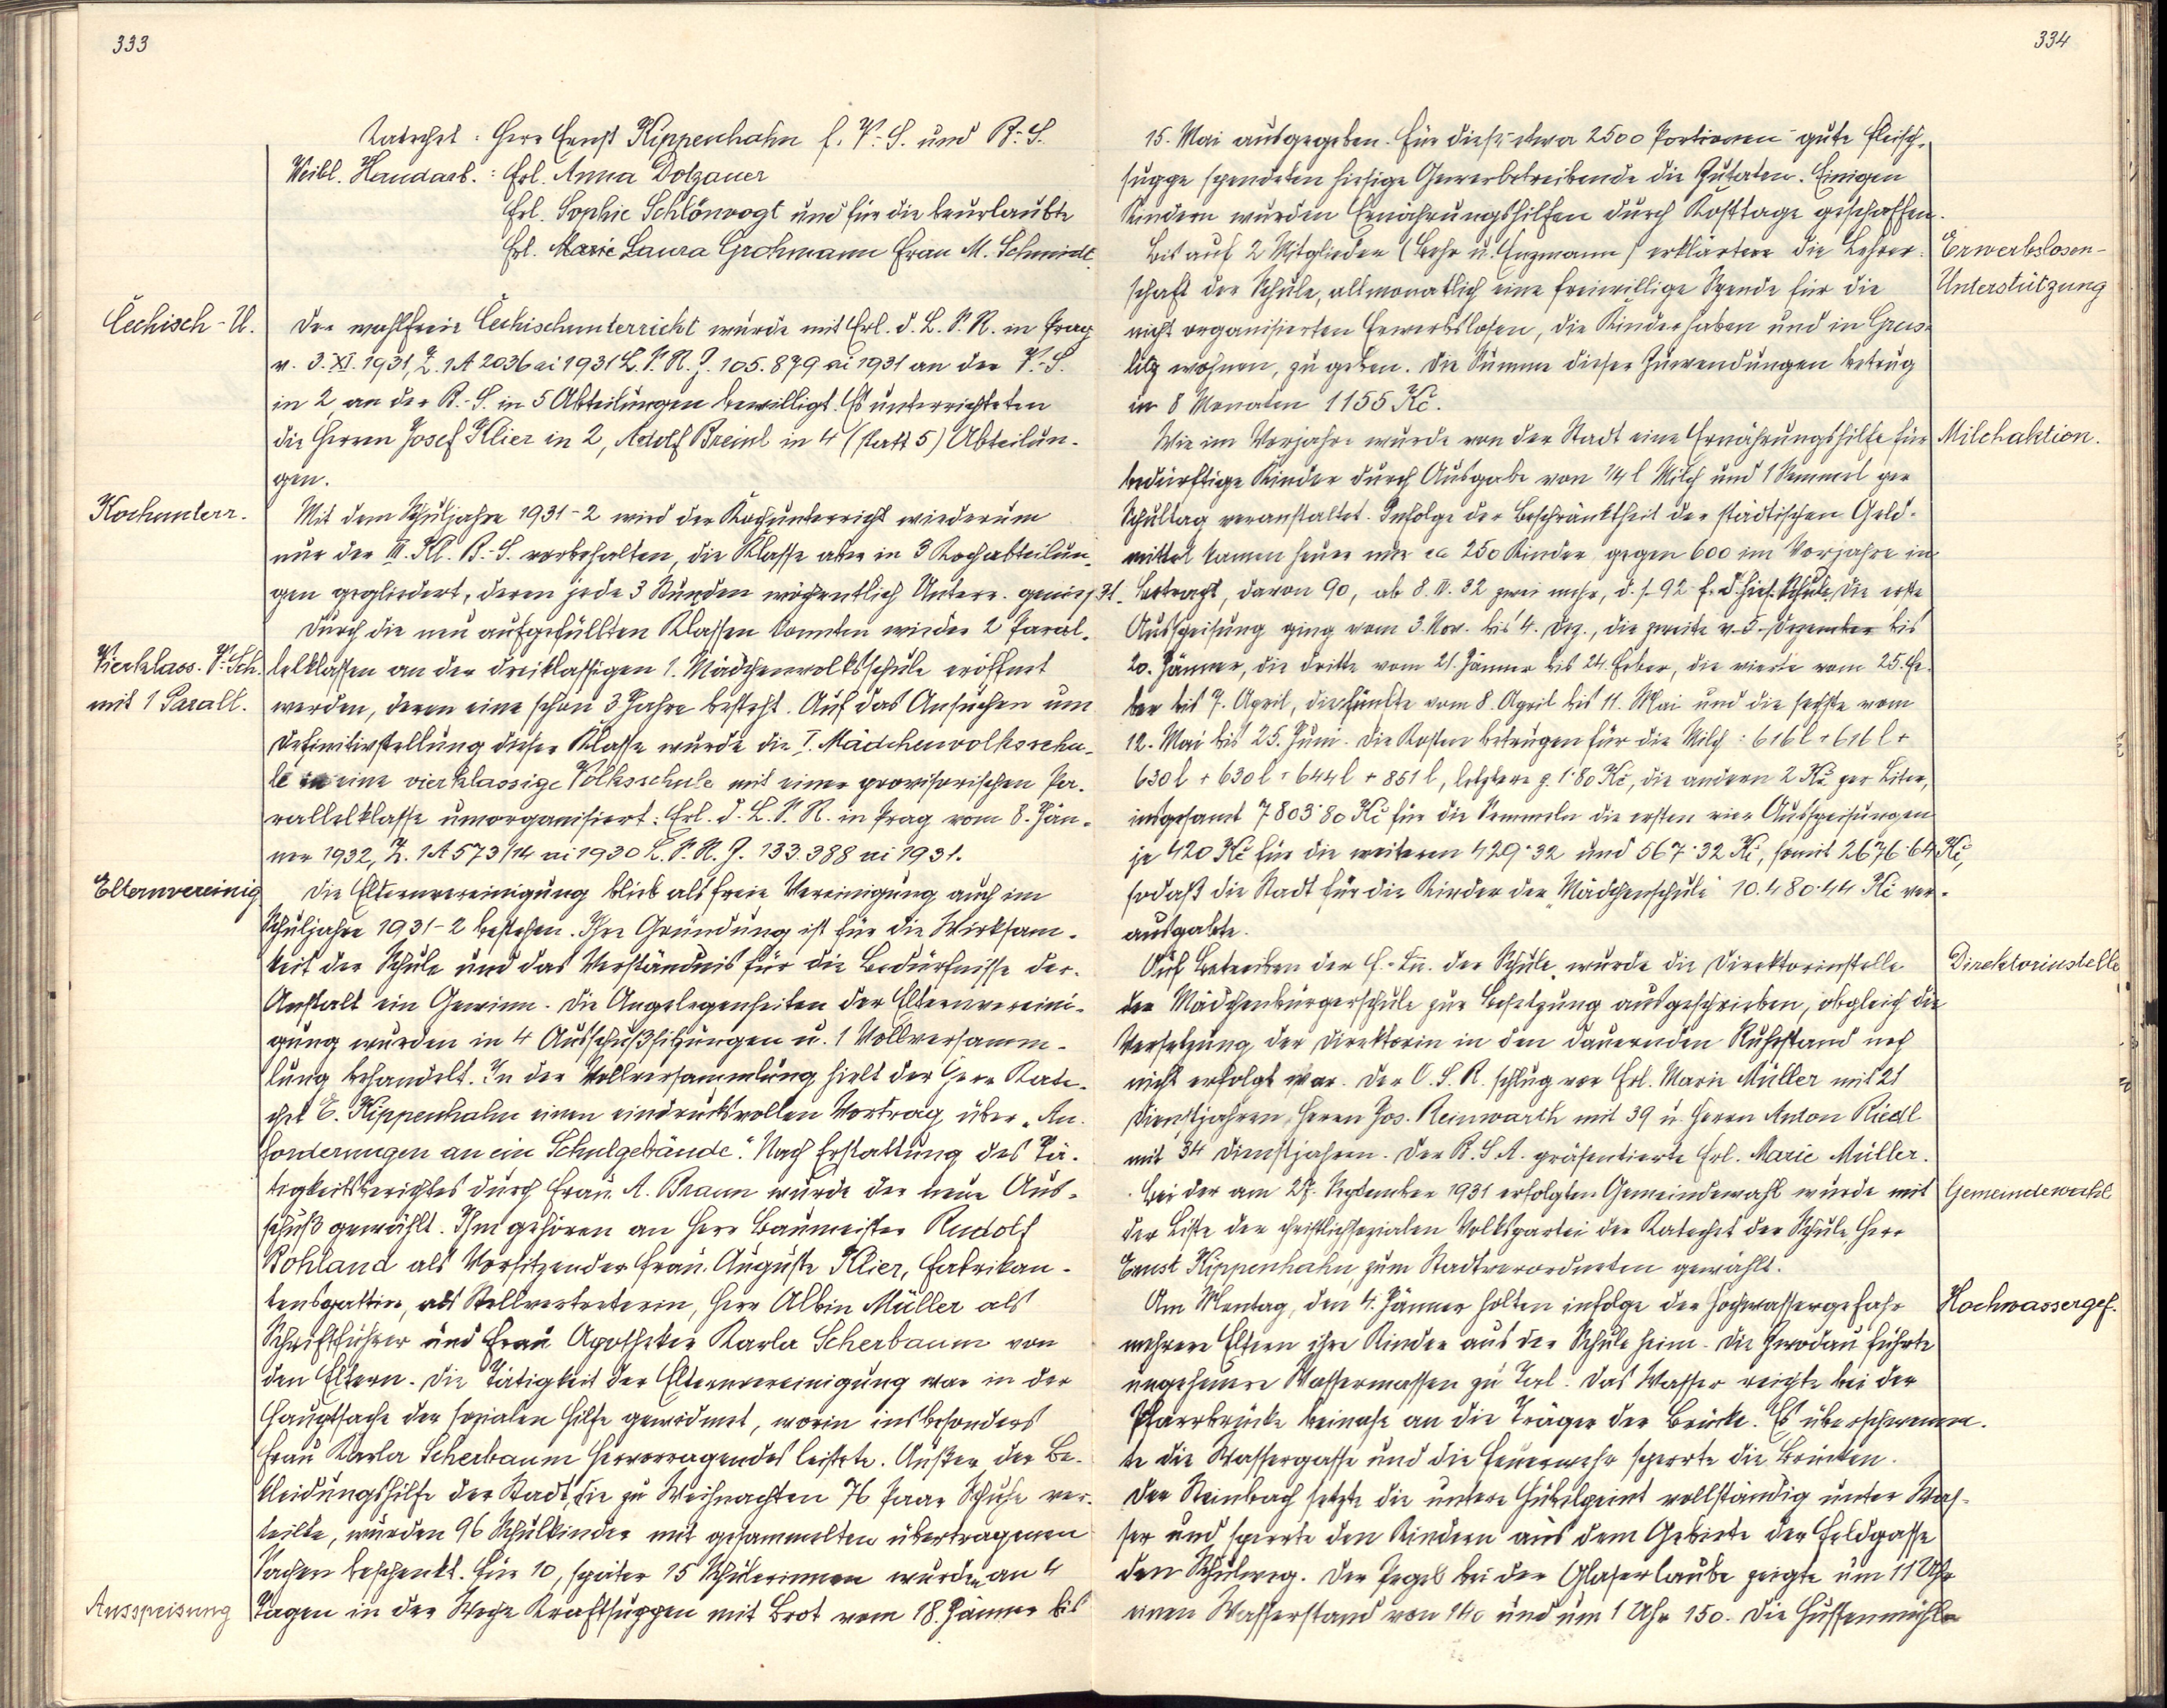 333
Katechet: Herr Ernst Kippenhahn f. V.-S. und B.-S.
Weibl. Handarb.: Frl. Anna Dolzauer
Frl. Sophie Schlönvogt und für die beurlaubte
Frl. Marie Laura Grohmann Frau M. Schmidt.
Čechisch-U.
Der wahlfreie Čechischunterricht wurde mit Erl. d. L. S. R. in Prag
v. 3. XI. 1931, Z. 1A 2036 ai 1931 L. S. R. Z. 105.879 ai 1931 an der V.-S.
in 2, an der B.-S. in 5 Abteilungen bewilligt. Es unterrichteten
die Herren Josef Klier in 2, Adolf Breinl in 4 (statt 5) Abteilun-
gen.
Kochunterr.
Mit dem Schuljahre 1931-2 wird der Kochunterricht wiederum
nur der III. Kl. B.-S. vorbehalten, die Klasse aber in 3 Kochabteilun-
gen gegliedert, deren jede 3 Stunden wöchentlich Unterr. genießt.
Durch die neu aufgefüllten Klassen konnten wieder 2 Paral-
Vierklass. V.-Sch.
lelklassen an der dreiklassigen 1. Mädchenvolksschule eröffnet
mit 1 Parall.
werden, deren eine schon 3 Jahre besteht. Auf das Ansuchen um
Definitivstellung dieser Klasse wurde die I. Mädchenvolksschu-
le in eine vierklassige Volksschule mit einer provisorischen Pa-
rallelklasse umorganisiert: Erl. d. L. S. R. in Prag vom 8. Jän-
ner 1932, Z. 1A 573/14 ai 1930 L. S. R. Z. 133.388 ai 1931.
Elternvereinig
Die Elternvereinigung blieb als freie Vereinigung auch im
Schuljahre 1931-2 bestehen. Ihre Gründung ist für die Wirksam-
keit der Schule und das Verständnis für die Bedürfnisse der
Anstalt ein Gewinn. Die Angelegenheiten der Elternvereini-
gung wurden in 4 Ausschußsitzungen u. 1 Vollversamm-
lung behandelt. In der Vollversammlung hielt der Herr Kate-
chet E. Kippenhahn einen eindrucksvollen Vortrag über „An-
forderungen an ein Schulgebäude". Nach Erstattung des Tä-
tigkeitsberichtes durch Frau A. Braun wurde der neue Aus-
schuß gewählt. Ihm gehören an Herr Baumeister Rudolf
Bohland als Vorsitzender Frau Auguste Klier, Fabrikan-
tensgattin, als Stellvertreterin, Herr Albin Müller als
Schriftführer und Frau Apotheker Karla Scherbaum von
den Eltern. Die Tätigkeit der Elternvereinigung war in der
Hauptsache der sozialen Hilfe gewidmet, worin insbesonders
Frau Karla Scherbaum Hervorragendes leistete. Außer der Be-
kleidungshilfe der Stadt, die zu Weihnachten 76 Paar Schuhe ver-
teilte, wurden 96 Schulkinder mit gesammelten übertragenen
Sachen beschenkt. Für 10, später 15 Schülerinnen wurden an 4
Ausspeisung
Tagen in der Woche Kraftsuppen mit Brot vom 18. Jänner bis
334
15. Mai ausgegeben. Für diese etwa 2500 Portionen gute Fleisch-
suppe spendeten hiesige Gewerbetreibende die Zutaten. Einigen
Kindern wurden Ernährungshilfen durch Kosttage geschaffen.
Bis auf 2 Mitglieder (Lehr u. Enzmann) erklärten die Lehrer-
Erwerbslosen-
schaft der Schule, allmonatlich eine freiwillige Spende für die
Unterstützung
nicht organisierten Erwerbslosen, die Kinder haben und in Gras-
litz wohnen, zu geben. Die Summe dieser Zuwendungen betrug
in 8 Monaten 1155 Kč.
Wie im Vorjahre wurde von der Stadt eine Ernährungshilfe für
Milchaktion.
bedürftige Kinder durch Ausgabe von 1/4 l Milch und 1 Semmel per
Schultag veranstaltet. Infolge der Beschränktheit der städtischen Geld-
mittel kamen heuer nur ca 250 Kinder, gegen 600 im Vorjahre in
Betracht, davon 90, ab 8. III. 32 zwei mehr, d. s. 92 f. d. hies. Schule. Die erste
Ausspeisung ging vom 3. Nov. bis 4. Dez., die zweite v. 5. Dezember bis
20. Jänner, die dritte vom 21. Jänner bis 24. Feber, die vierte vom 25. Fe-
ber bis 7. April, die fünfte vom 8. April bis 11. Mai und die sechste vom
12. Mai bis 25. Juni. Die Kosten betrugen für die Milch: 616 l + 616 l +
630 l + 630 l + 644 l + 851 l, letztere z. 1·80 Kč, die andern 2 Kč per Liter,
insgesamt 7803·80 Kč für die Semmeln die ersten vier Ausspeisungen
je 420 Kč für die weiteren 429·32 und 567·32 Kč, somit 2676·64 Kč,
sodaß die Stadt für die Kinder der „Mädchenschule" 10.480·44 Kč ver-
ausgabte.
Auf Betreiben der der Schule wurde die Direktorinstelle
Direktorinstelle
der Mädchenbürgerschule zur Besetzung ausgeschrieben, obgleich die
Versetzung der Direktorin in den dauernden Ruhestand noch
nicht erfolgt war. Der O. S. R. schlug vor Frl. Marie Müller mit 21
Dienstjahren, Herrn Jos. Reinwarth mit 39 u. Herrn Anton Riedl
mit 34 Dienstjahren. Der B. S. A. präsentierte Frl. Marie Müller.
Bei der am 27. September 1931 erfolgten Gemeindewahl wurde mit
Gemeindewahl
der Liste der christlichsozialen Volkspartei der Katechet der Schule, Herr
Ernst Kippenhahn, zum Stadtverordneten gewählt.
Am Montag, den 4. Jänner holten infolge der Hochwassergefahr
Hochwassergef.
mehrere Eltern ihre Kinder aus der Schule heim. Die Zwodau führte
ungeheure Wassermassen zu Tal. Das Wasser reichte bei der
Pfarrbrücke beinahe an die Träger der Brücke. Es überschwemm-
te die Wassergasse und die Feuerwehr sperrte die Brücken.
Der Steinbach setzte die untere vollständig unter Was-
ser und sperrte den Kindern aus dem Gebiete der Feldgasse
den Schulweg. Der Pegel bei der Glaserlaube zeigte um 11 Uhr
einen Wasserstand von 140 und um 1 Uhr 150. Die Hussenmühle